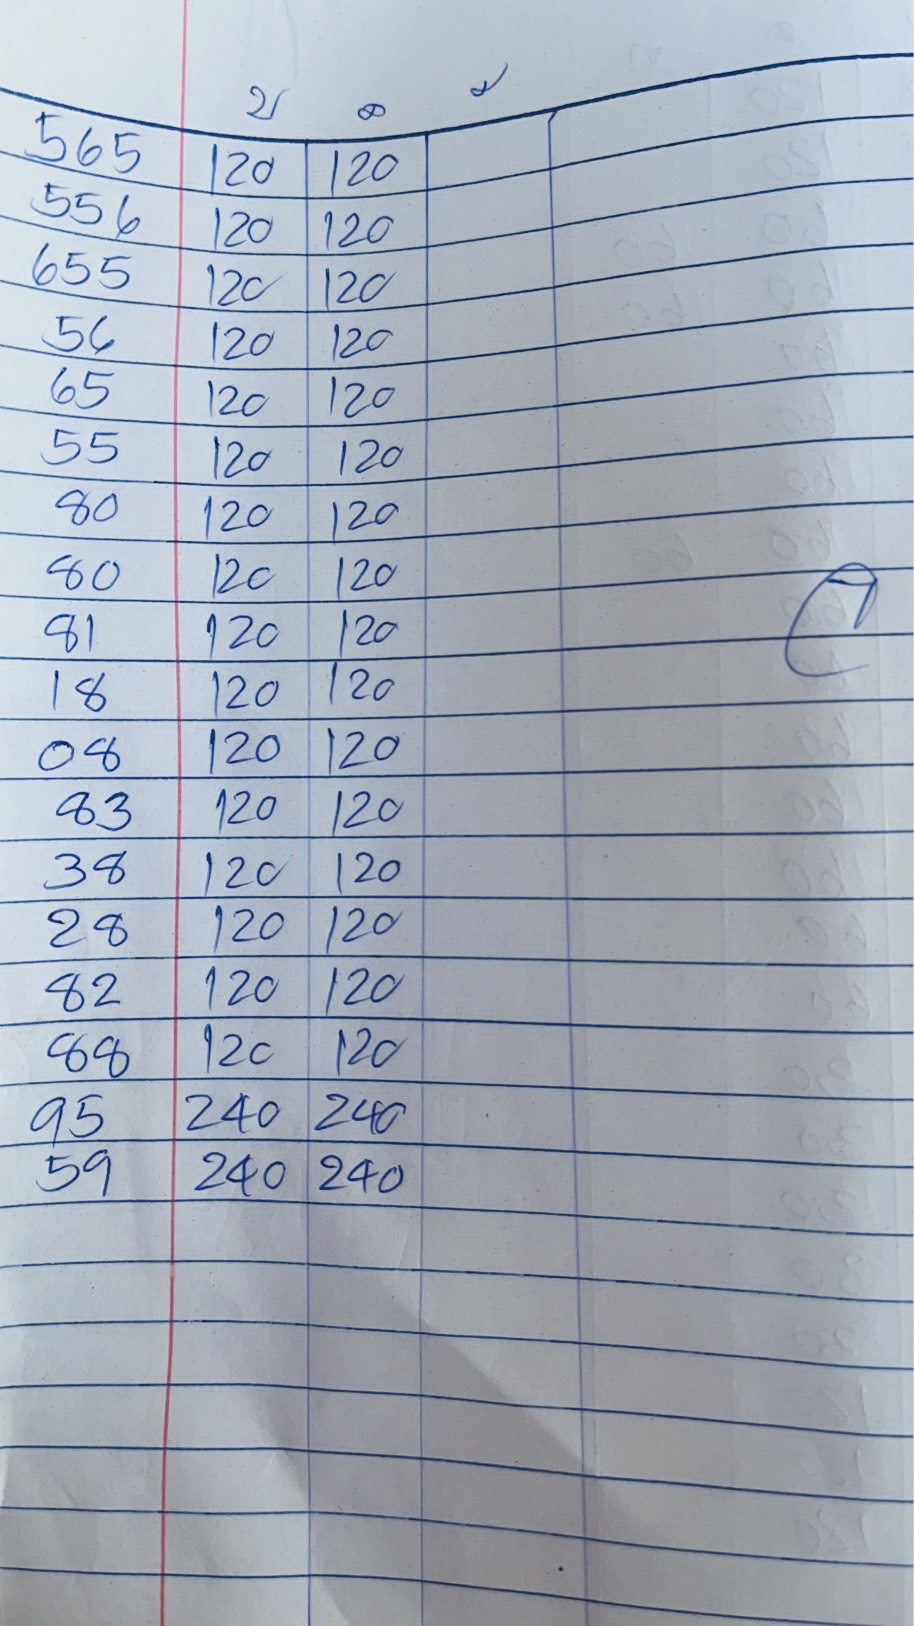 บ ล
565 120 120
556 120 120
655 120 120
56 120 120
65 120 120
55 120 120
80 120 120
80 120 120
81 120 120
18 120 120
08 120 120
83 120 120
38 120 120
28 120 120
82 120 120
88 120 120
95 240 240
59 240 240